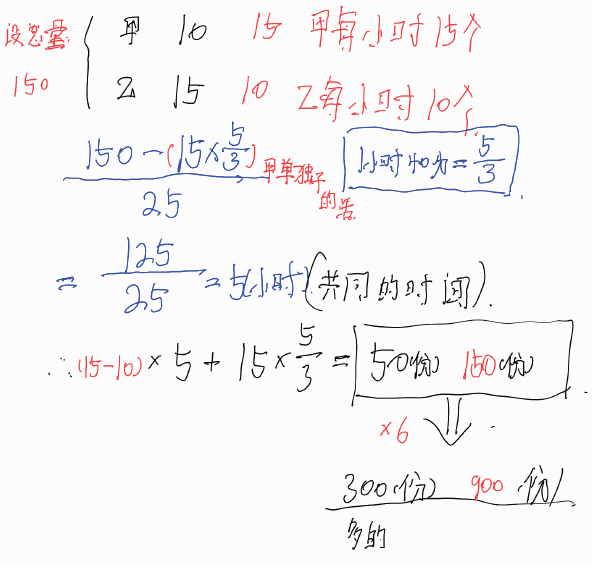 设总量 甲 10 15 甲每小时15个
150 乙 15 10 乙每小时10个
150-(15×5/3) 甲单独干的活 1小时40分=5/3
25
= 125/25 = 5(小时)(共同的时间).
∴(15-10)×5+15×5/3= 50(份) 150(份)
×6
300(份) 900(份)
多的